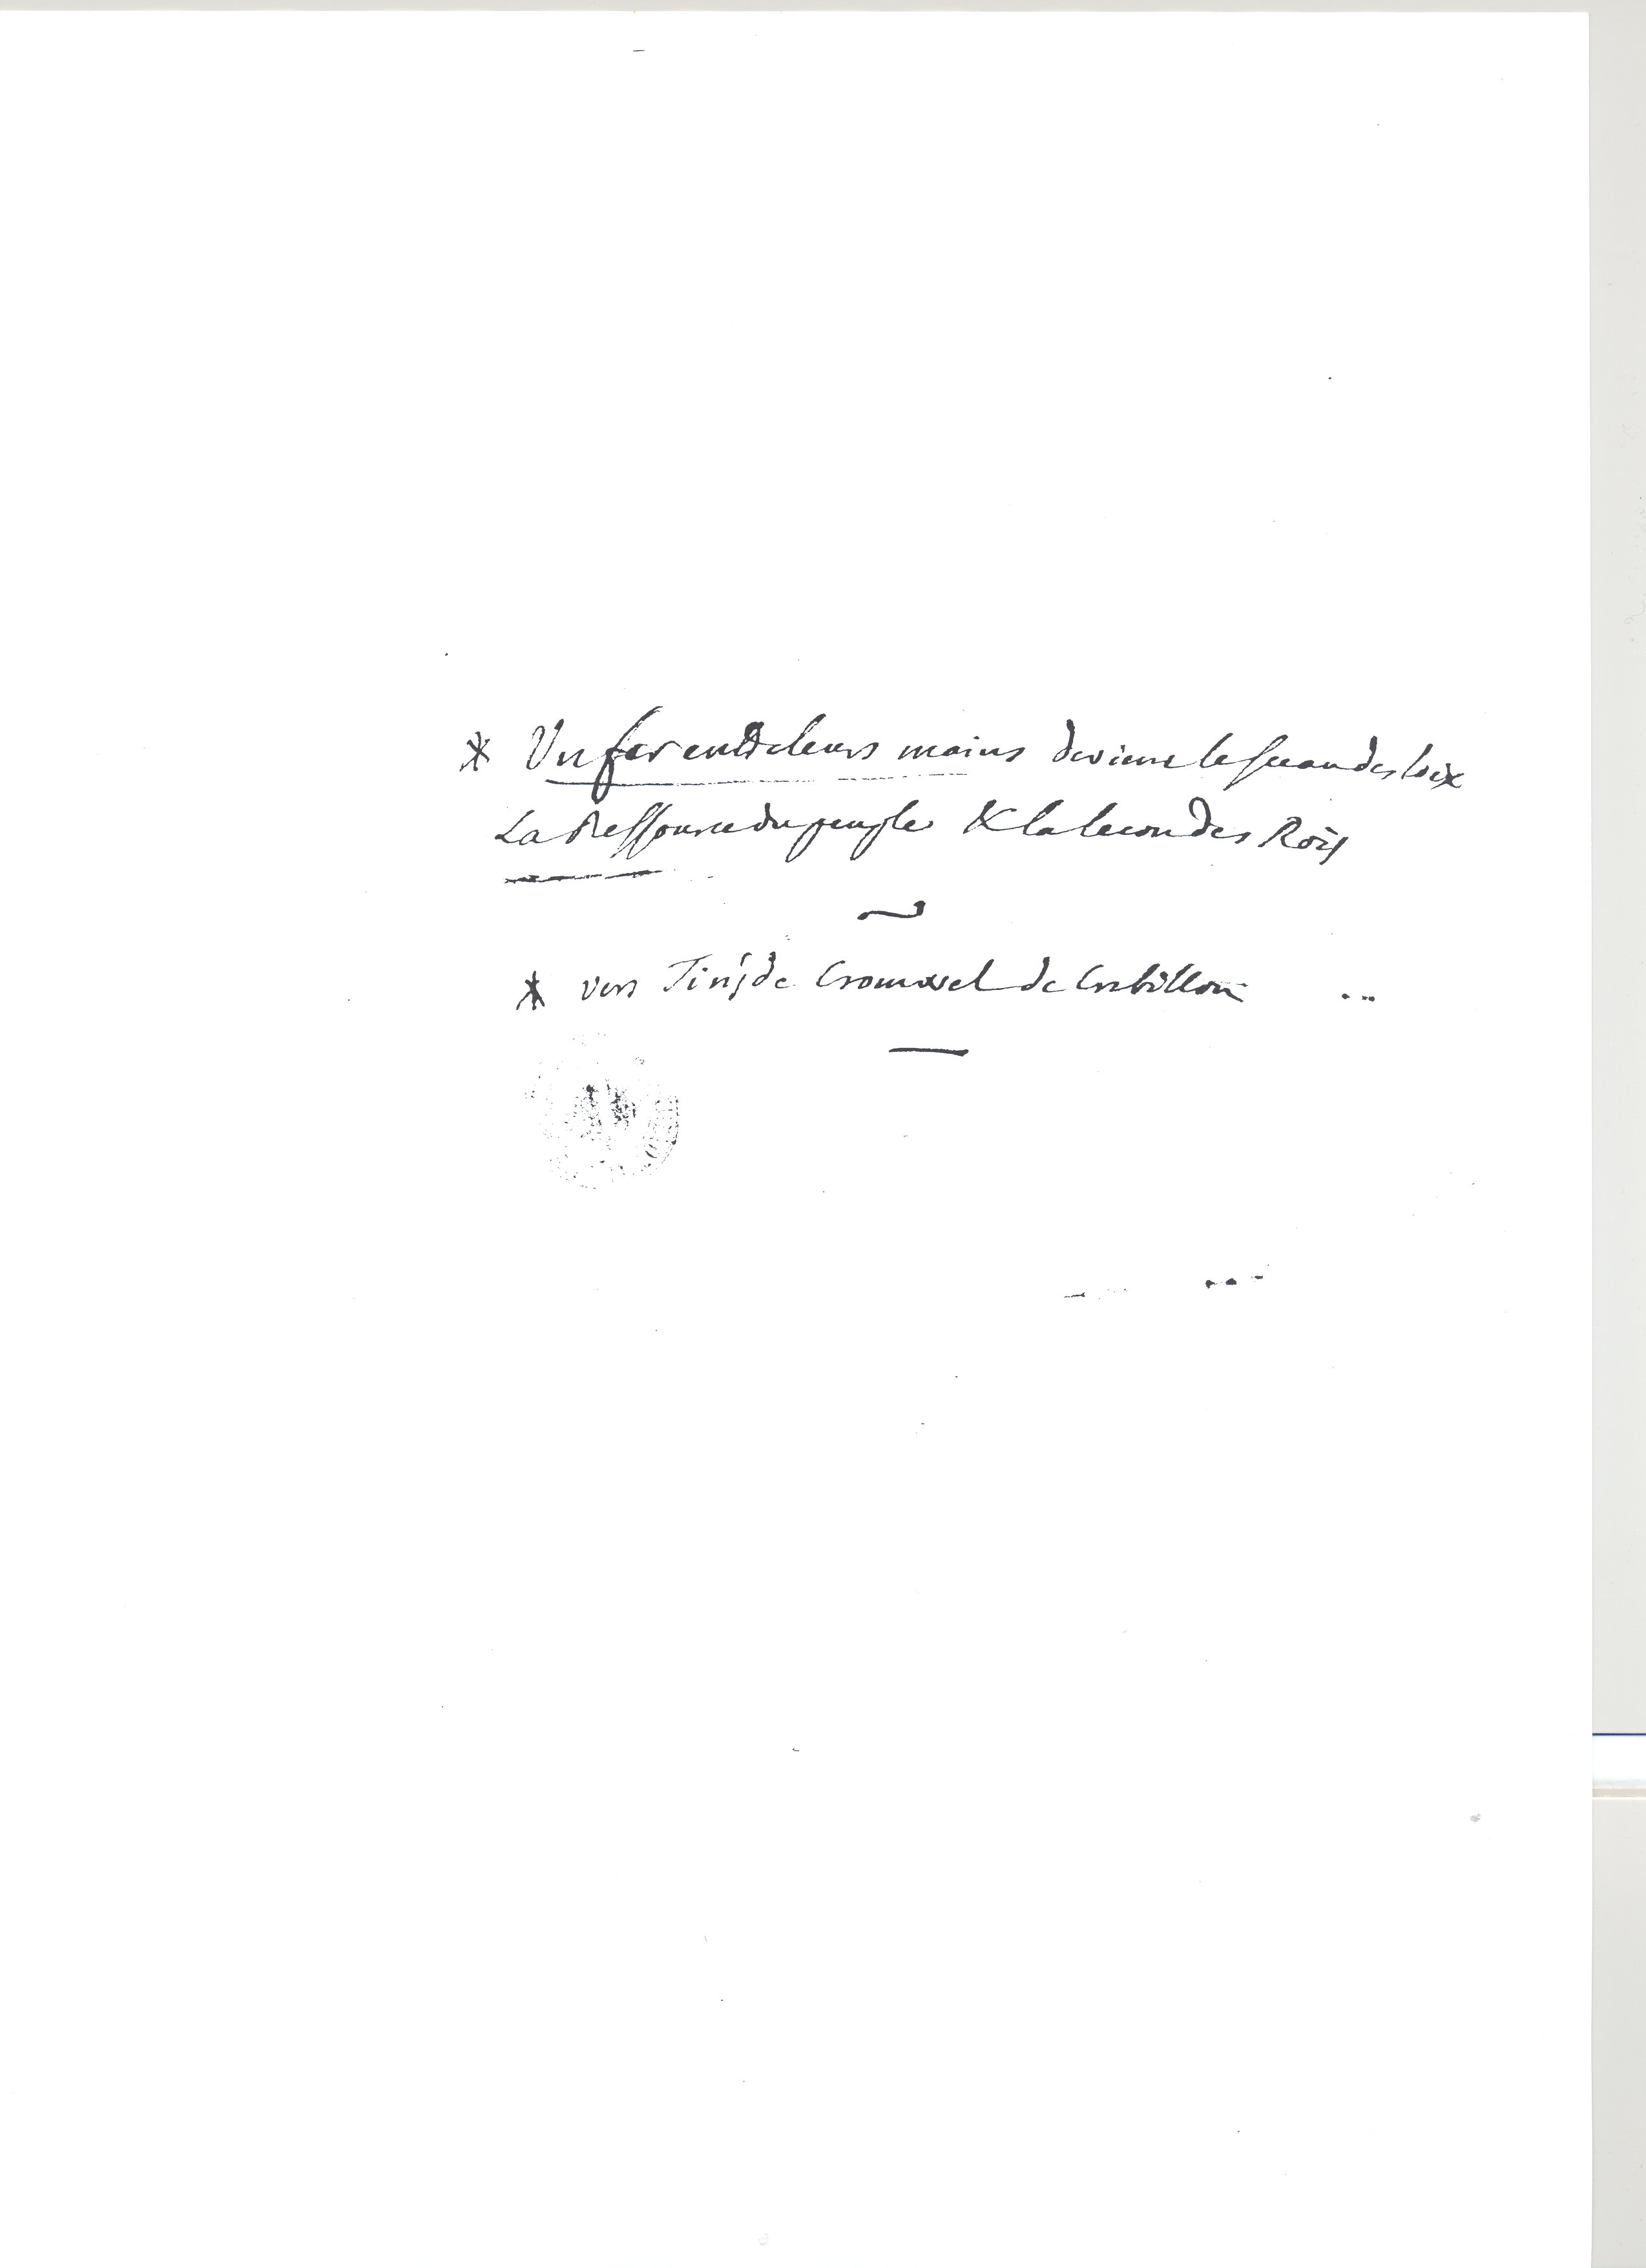 * Un fer en leurs mains devient le sceau des loix
La Ressource du peuple & la lecon des Rois
* vers Tirés de Cromwel de Crebillon